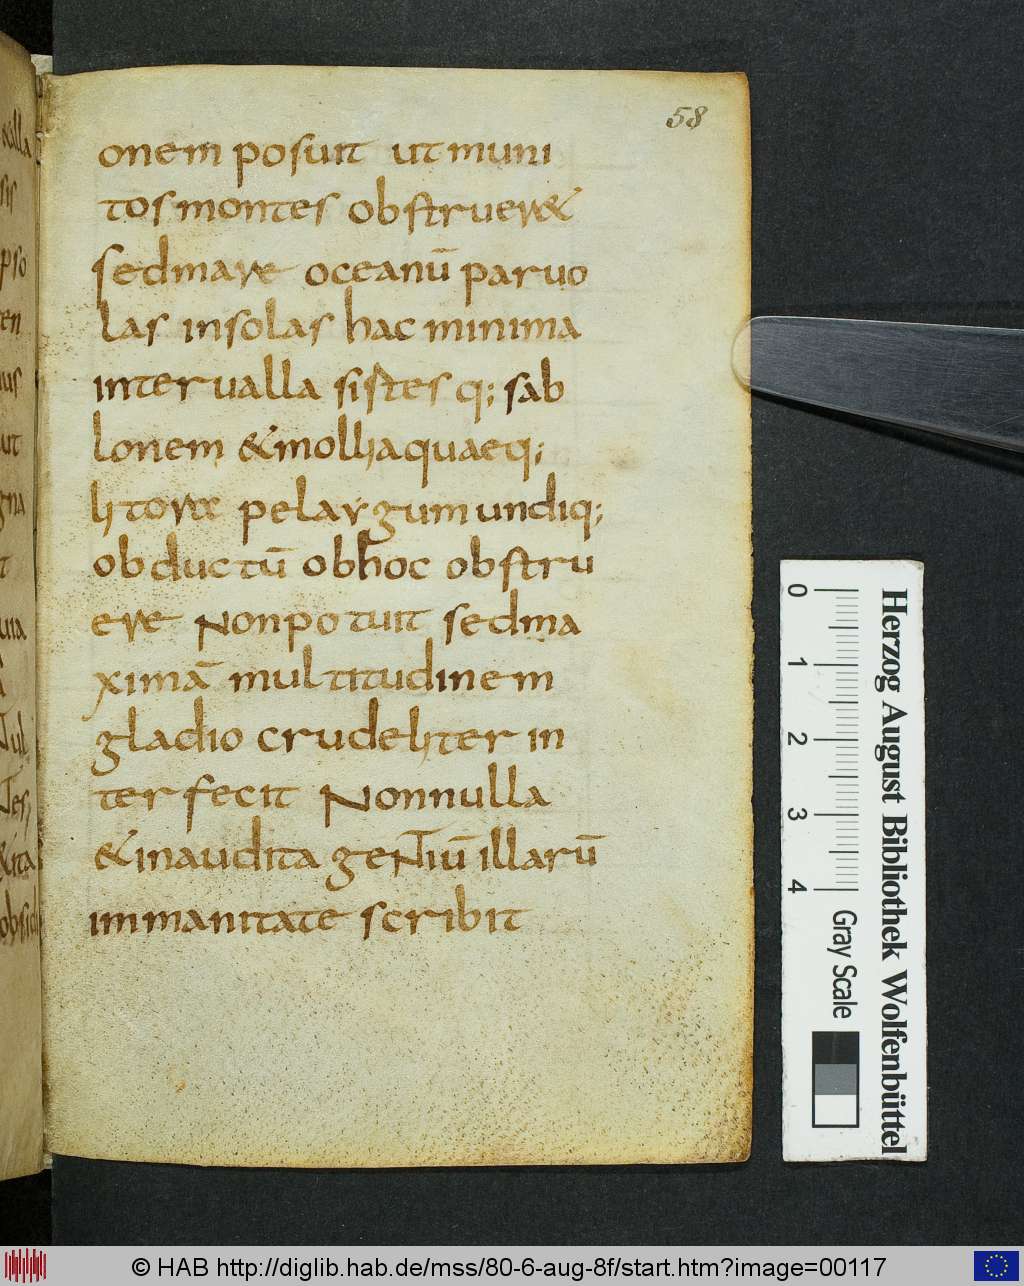 58
onem posuit ut muni
tos montes obstruer&
sed mare oceanū paruo
las insolas hac minima
interualla sistesq; sab
lonem & mollia quaeq;
litore pelargum undiq;
obductū ob hoc obstru
ere Non potuit sed ma
ximā multitudinem
gladio crudeliter in
terfecit Nonnulla
& inaudita geNtiū illarū
immanitate scribit
0 1 2 3 4
Gray Scale
Herzog August Bibliothek Wolfenbüttel
© HAB http://diglib.hab.de/mss/80-6-aug-8f/start.htm?image=00117